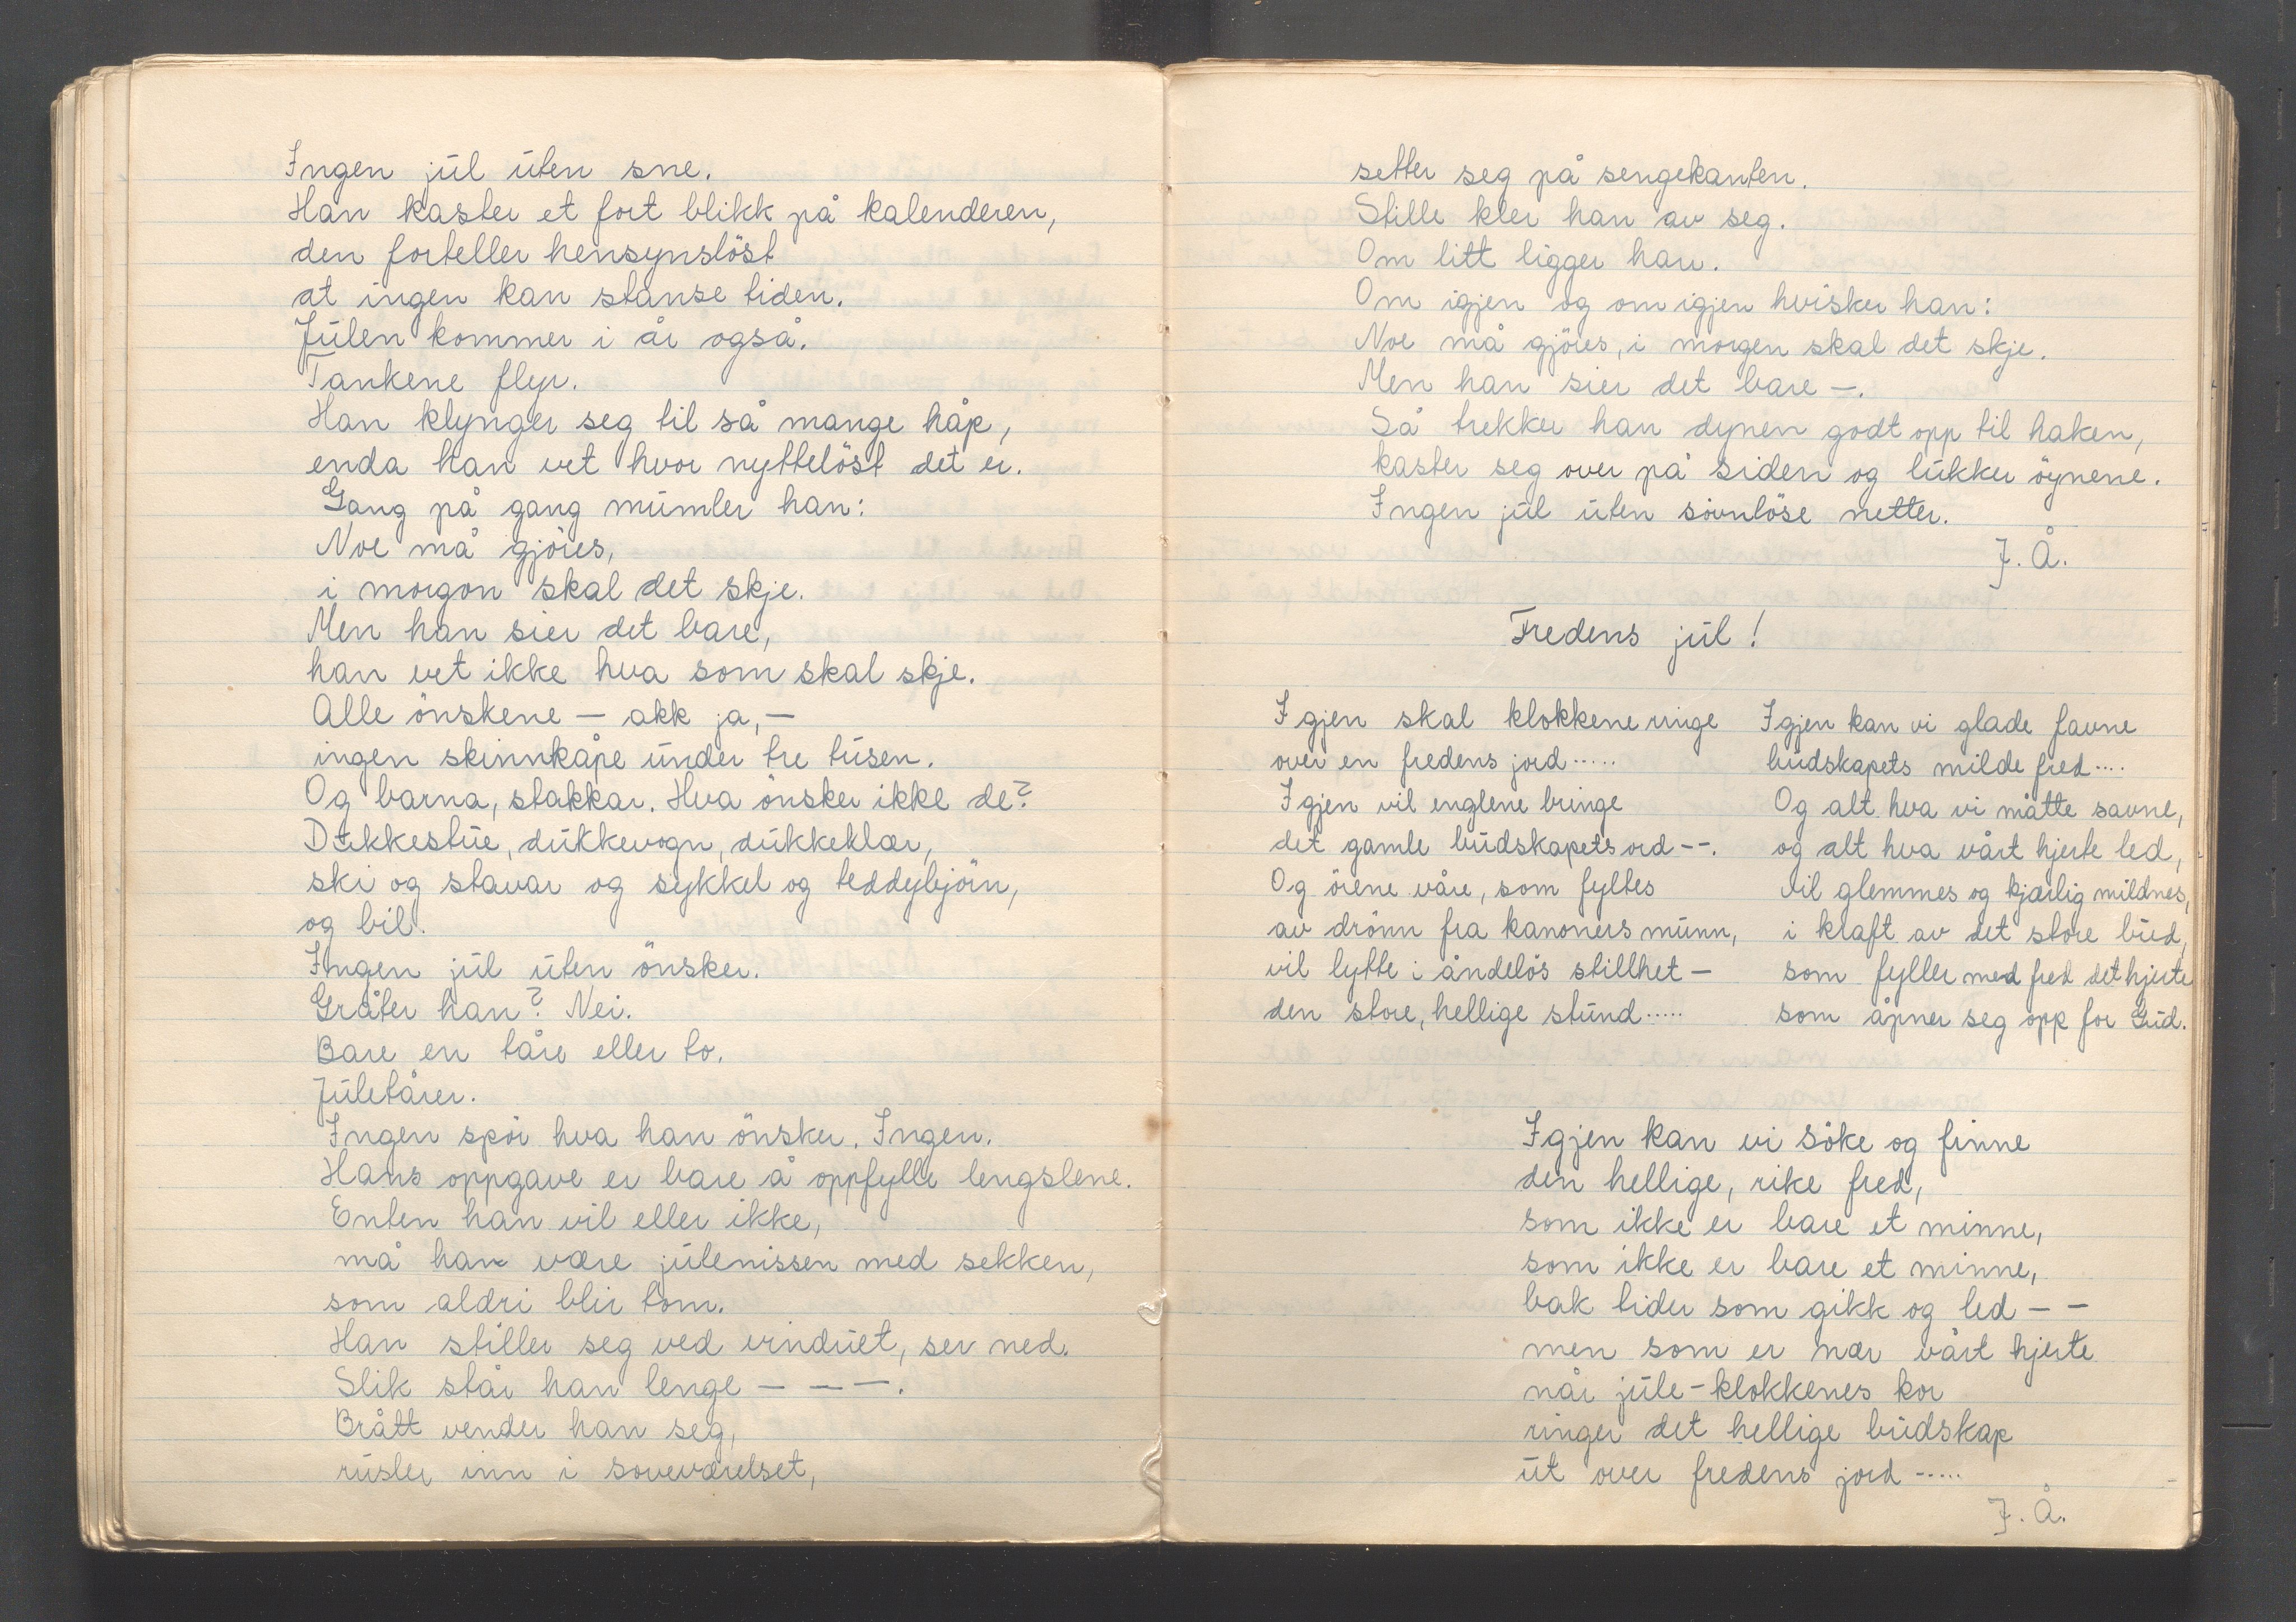 Ingen jul uten sne.
Han kaster et fort blikk på kalenderen,
den forteller hensynslöst
at ingen kan stanse tiden.
Julen kommer i år også.
Tankene flyr.
Han klynger seg til så mange håp,
enda han vet hvor nyttelöst det er.
Gang på gang mumler han:
Noe må gjöres,
i morgon skal det skje.
Men han sier det bare,
han vet ikke hva som skal skje.
Alle önskene – akk ja, –
ingen skinnkåpe under tre tusen.
Og barna, stakkar. Hva önsker ikke de?
Dukkestue, dukkevogn, dukkeklær,
ski og stavar og sykkel og teddybjörn,
og bil.
Ingen jul uten önsker.
Gråter han? Nei.
Bare en tåre eller to.
Juletårer.
Ingen spör hva han önsker. Ingen.
Hans oppgave er bare å oppfylle lengslene.
Enten han vil eller ikke,
må han være julenissen med sekken,
som aldri blir tom.
Han stiller seg ved vinduet, ser ned.
Slik står han lenge – – –.
Brått vender han seg,
rusler inn i soveværelset,
setter seg på sengekanten.
Stille kler han av seg.
Om litt ligger han.
Om igjen og om igjen hvisker han:
Noe må gjöres, i morgen skal det skje.
Men han sier det bare –.
Så trekker han dynen godt opp til haken,
kaster seg over på siden og lukker öynene.
Ingen jul uten sövnlöse netter.
J. Å.
Fredens jul!
Igjen skal klokkene ringe
over en fredens jord.....
Igjen vil englene bringe
det gamle budskapets ord --.
Og örene våre, som fyltes
av drönn fra kanoners munn,
vil lytte i åndelös stillhet –
den store, hellige stund.....
Igjen kan vi glade favne
budskapets milde fred....
Og alt hva vi måtte savne,
og alt hva vårt hjerte led,
vil glemmes og kjærlig mildnes,
i kraft av det store bud,
som fyller med fred det hjerte
som åpner seg opp for Gud.
Igjen kan vi söke og finne
den hellige, rike fred,
som ikke er bare et minne,
som ikke er bare et minne,
bak tider som gikk og led – –
men som er nær vårt hjerte
når jule-klokkenes kor
ringer det hellige budskap
ut over fredens jord -....
J. Å.